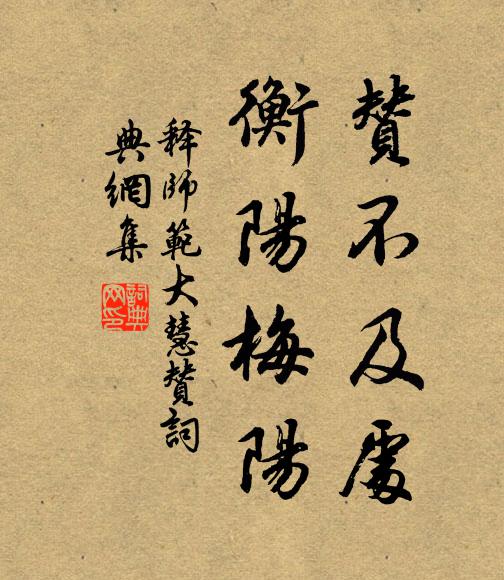 贊不及處
衡陽梅陽
釋師範大慧贊詞
典網集
詞典網印